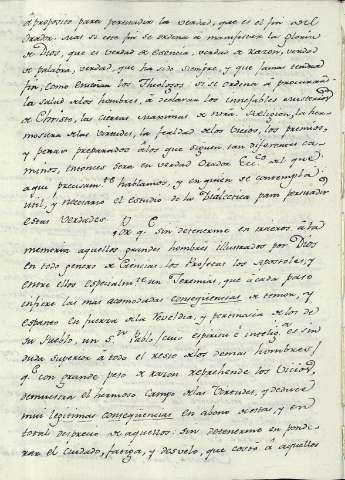 â proposito para persuadir la verdad, que es el fin del
Orador. Mas si este fin se ordena a manifestar la gloria
de Dios, que es verdad de esencia, verdad de razon, verdad
de palabra, verdad, que ha sido siempre, y que jamas tendrá
fin, como enseñan los Theologos si se ordena â procurar
la salud de los hombres, â declarar los inefables misterios
de Christo, las ciertas maximas de nrâ. Religion, la her-
mosura de las virtudes, la fealdad de los vicios, los premios,
y penas preparados â los que siguen tan diferentes ca-
minos, entonces sera en verdad Orador Ecc.co del que
aqui precisam.te hablamos, y en quien se contempla
util, y necesario el estudio de la Dialectica para persuadir
estas verdades.
Por q.e sin detenerme en traeros â la
memoria aquellos grandes hombres illustrados por Dios
en todo genero de Ciencias. los Profetas los Apostoles, y
entre ellos especialm.te un Jeremias, que â cada paso
infiere las mas acomodadas consequencias de temor, y
espanto en fuerza de la reveldia, y pertinacia de los de
su Pueblo, un S. Pablo (cuio espiritu è intelig.a es sin
duda superior â todo el resto de los demas hombres)
q.e con grande peso de razon reprehende los vicios,
demuestra el hermoso campo de las virtudes, y deduce
mui legitimas consequencias en abono de estas, y en
total desprecio de aquellos: sin detenerme en ponde-
rar el cuidado, fatiga, y desvelo, que costó â aquellos